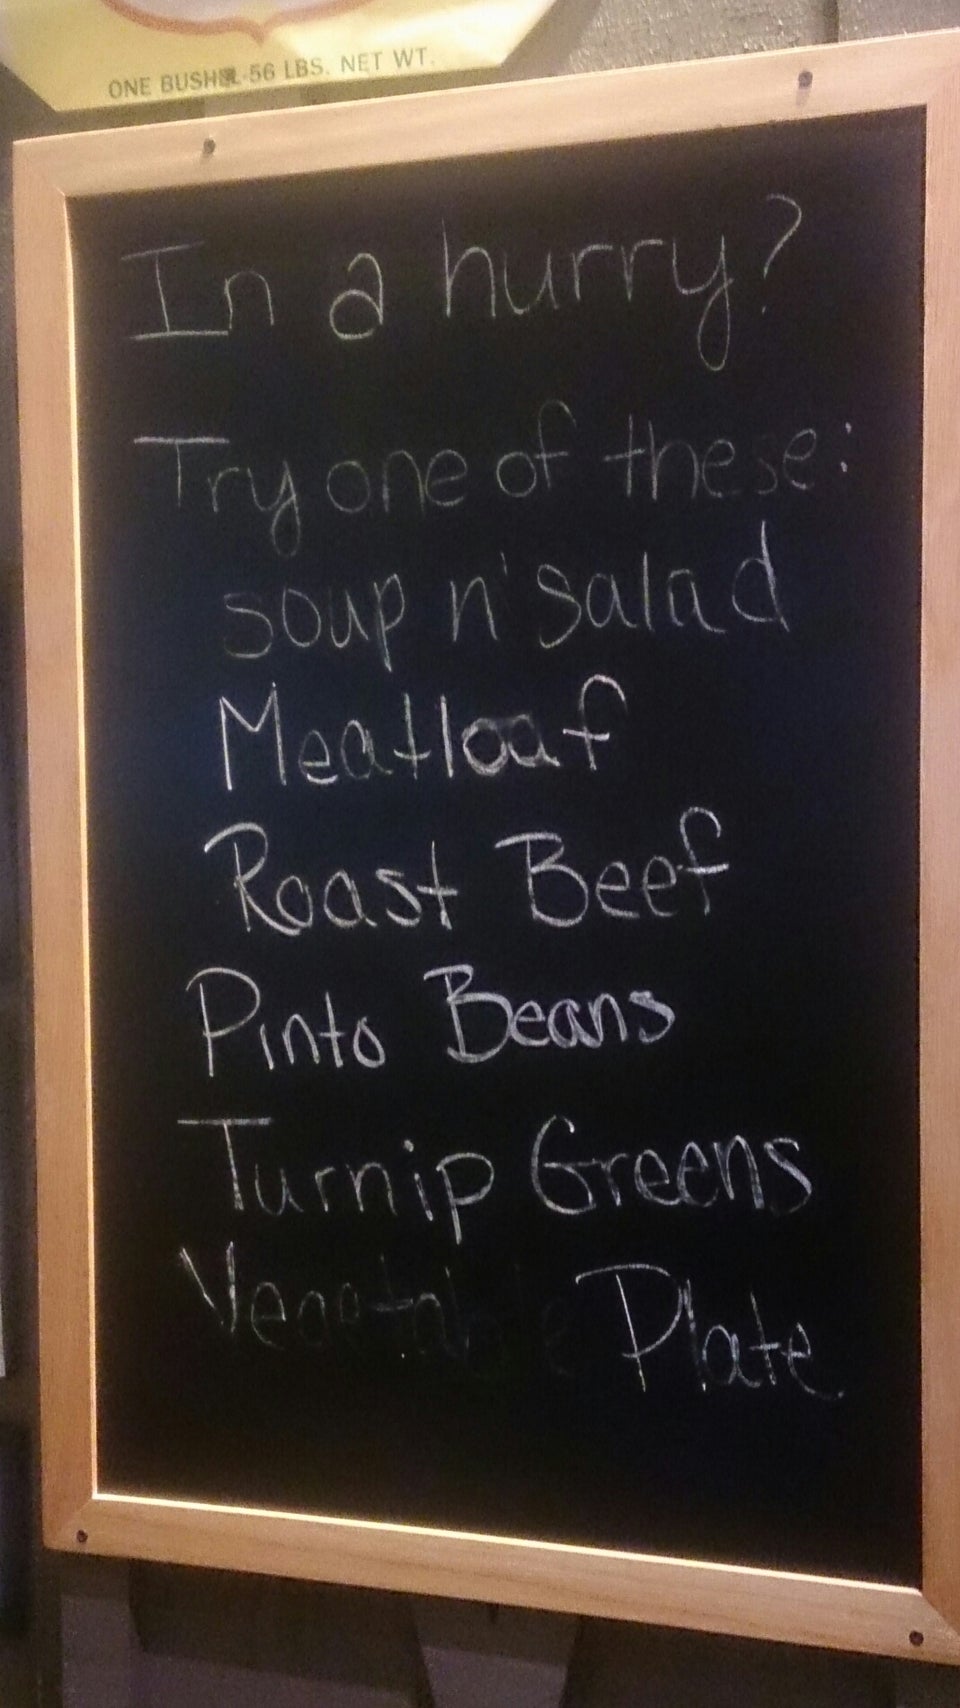 ONE BUSHEL-56 LBS. NET WT.
In a hurry?
Try one of these:
soup n' salad
Meatloaf
Roast Beef
Pinto Beans
Turnip Greens
Vegetable Plate